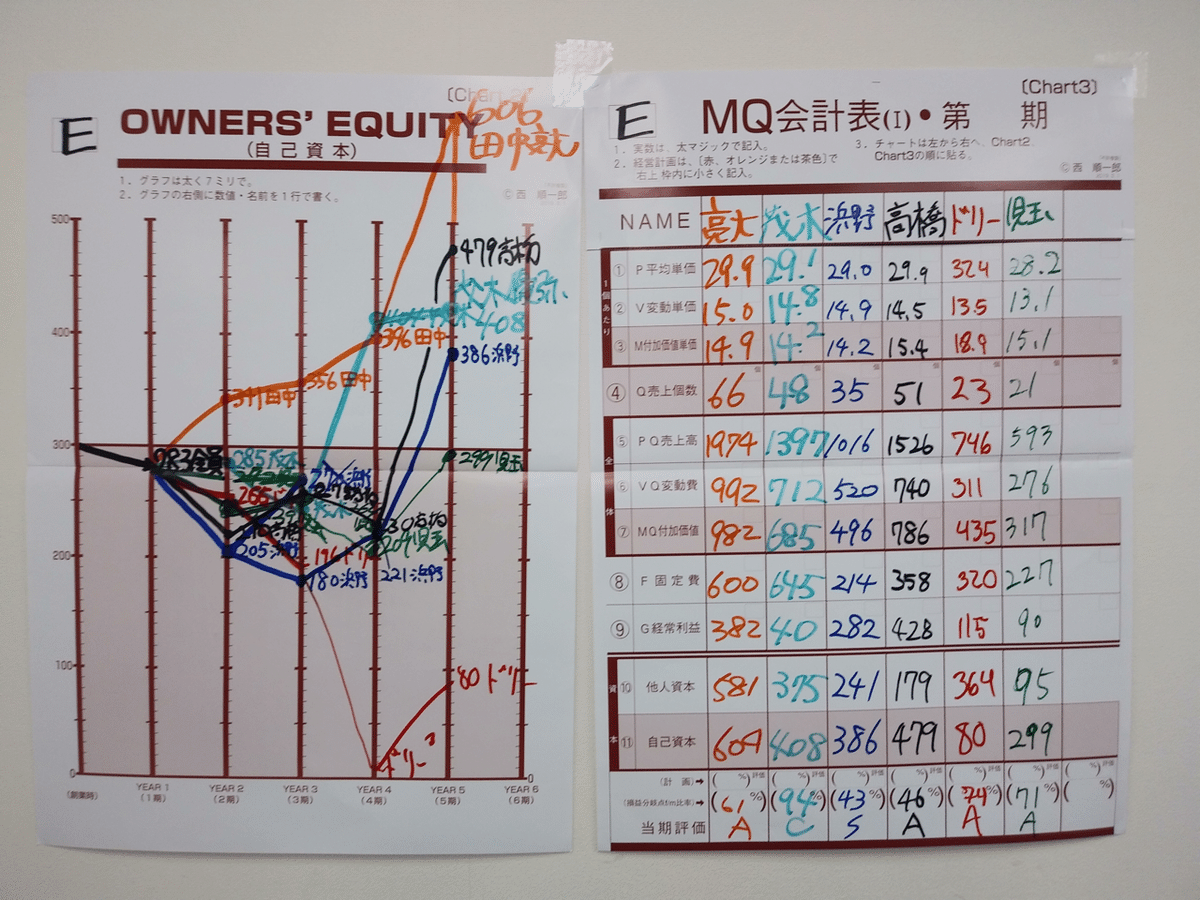 E
OWNERS' EQUITY
(自己資本)
1. グラフは太く7ミリで。
2. グラフの右側に数値・名前を1行で書く。
© 西 順一郎
606
田中亮大
500
400
300
200
100
0
0
479高橋
408
396田中
386浜野
356田中
341田中
283全員
285茂木
299児玉
265
205浜野
196ドリー
180浜野
221浜野
209児玉
80ドリー
ドリー3
(創業時)
YEAR 1
(1期)
YEAR 2
(2期)
YEAR 3
(3期)
YEAR 4
(4期)
YEAR 5
(5期)
YEAR 6
(6期)
(Chart3)
E
MQ会計表(I)・第 期
1. 実数は、太マジックで記入。
2. 経営計画は、〔赤、オレンジまたは茶色〕で右上 枠内に小さく記入。
3. チャートは左から右へ、Chart2、Chart3の順に貼る。
© 西 順一郎
NAME 亮大 茂木 浜野 高橋 ドリー 児玉
1個あたり
① P平均単価 29.9 29.1 29.0 29.9 32.4 28.2
② V変動単価 15.0 14.8 14.9 14.5 13.5 13.1
③ M付加価値単価 14.9 14.2 14.2 15.4 18.9 15.1
④ Q売上個数 66 48 35 51 23 21
全体
⑤ PQ売上高 1974 1397 1016 1526 746 593
⑥ VQ変動費 992 712 520 740 311 276
⑦ MQ付加価値 982 685 496 786 435 317
⑧ F固定費 600 645 214 358 320 227
⑨ G経常利益 382 40 282 428 115 90
資本
⑩ 他人資本 581 375 241 179 364 95
⑪ 自己資本 604 408 386 479 80 299
(計画)➡ ( %)評価 ( %)評価 ( %)評価 ( %)評価 ( %)評価 ( %)評価 ( %)評価
(損益分岐点f/m比率)➡ (61%) (94%) (43%) (46%) (74%) (71%) ( %)
当期評価 A C S A A A